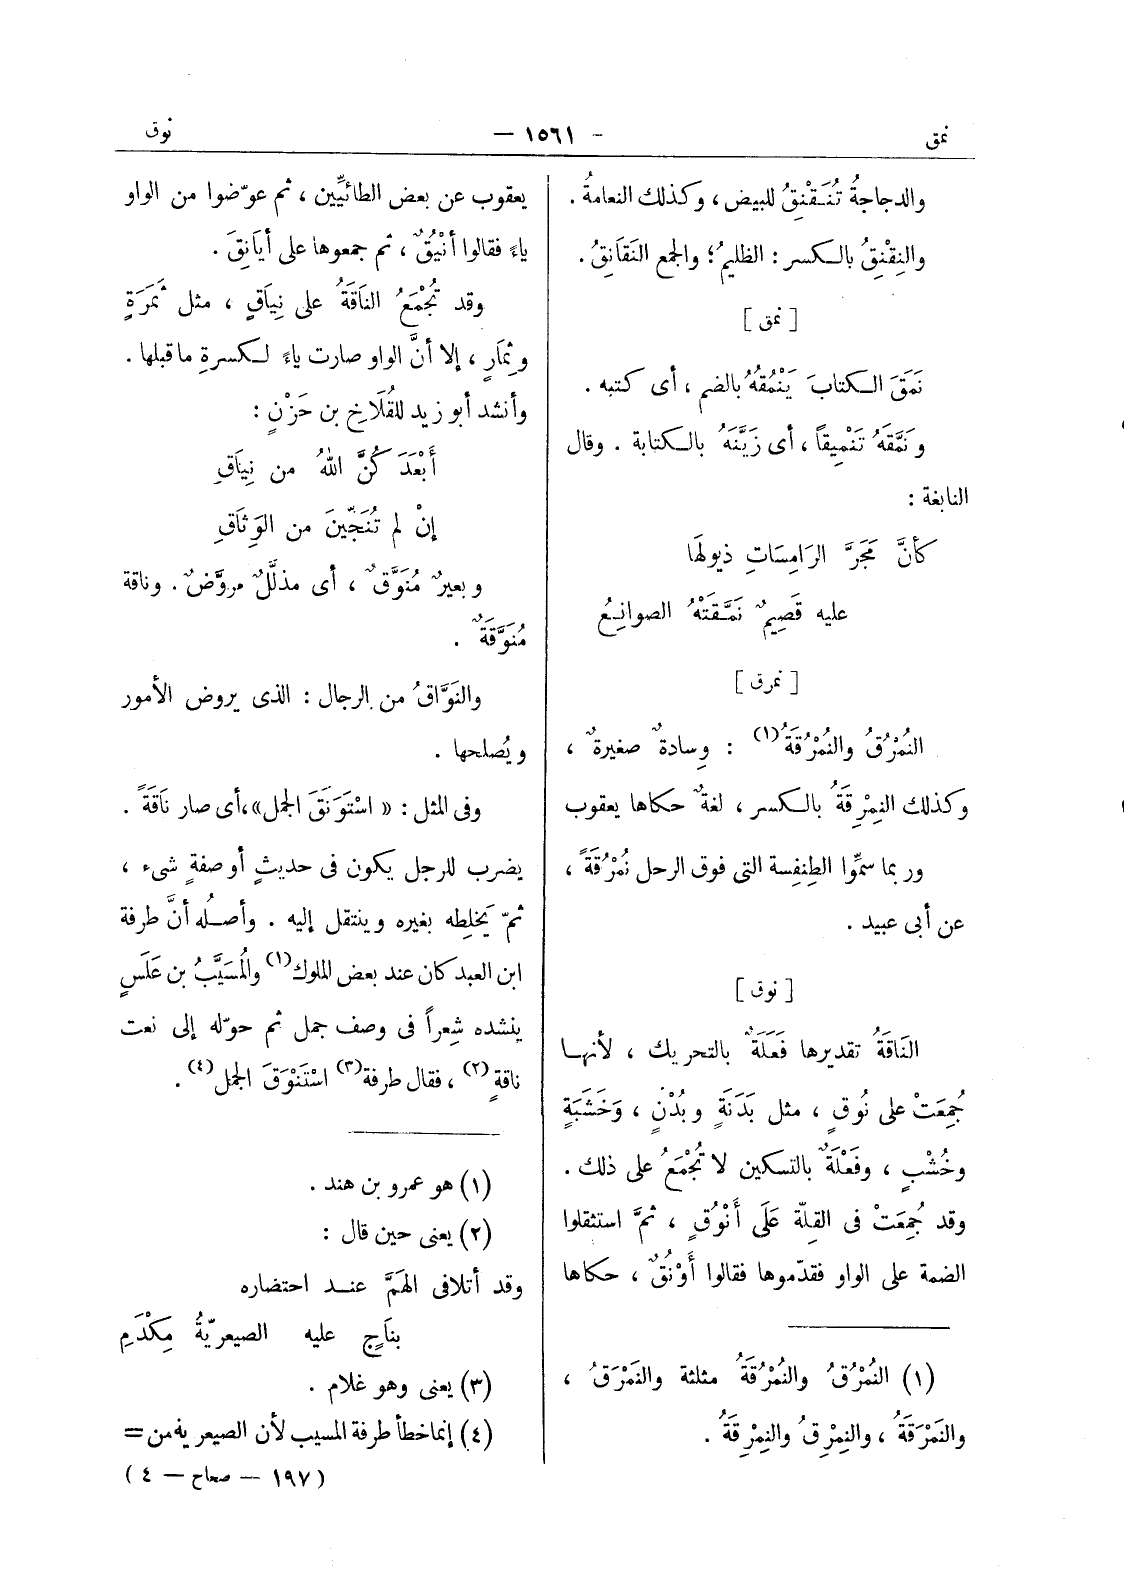 نمق
- ١٥٦١ —
نوق
والدجاجةُ تُنَقْنِقُ للبيض ، وكذلك النعامةُ .
والنِقْنِقُ بالكسر : الظليمُ؛ والجمع النَقَانِقُ .
[ نمق ]
نَمَقَ الكتابَ يَنْمُقهُ بالضم ، أى كتبه .
ونَمَّقَهُ تَنْمِيقاً ، أى زَيَّنَهُ بالكتابة . وقال
النابغة :
كأنَّ مَجَرَّ الرَامِسَاتِ ذيولَها
عليه قَصِيمٌ نَمَّقَتْهُ الصوانِعُ
[ نمرق ]
النُمْرُقُ والنُمْرُقَةُ(١) : وِسادةٌ صغيرةٌ ،
وكذلك النِمْرِقَةُ بالكسر ، لغةٌ حكاها يعقوب
وربما سمِّوا الطِنفِسة التى فوق الرحل نُمْرُقَةً ،
عن أبى عبيد .
[ نوق ]
النَاقَةُ تقديرها فَعَلَةٌ بالتحريك ، لأنها
جُمِعَتْ على نُوقٍ ، مثل بَدَنَةٍ وبُدْنٍ ، وَخَشَبَةٍ
وخُشْبٍ ، وفَعْلَةٌ بالتسكين لا تُجْمَعُ على ذلك .
وقد جُمِعَتْ فى القلّة عَلَى أَنْوُقٍ ، ثمَّ استثقلوا
الضمة على الواو فقدّموها فقالوا أَوْنُقٌ ، حكاها
(١) النُمْرُقُ والنُمْرُقَةُ مثلثة والنَمْرَقُ ،
والنَمْرَقَةُ ، والنِمْرِقُ والنِمْرِقَةُ .
يعقوب عن بعض الطائيِّين ، ثم عوّضوا من الواو
ياءً فقالوا أنْيُقٌ ، ثم جمعوها على أيَانِقَ .
وقد تُجْمَعُ النَاقَةُ على نِيَاقٍ ، مثل ثَمَرَةٍ
وثِمَارٍ ، إلا أنَّ الواو صارت ياءً لكسرةِ ما قبلها .
وأنشد أبو زيد للقُلَاخِ بن حَزْنٍ :
أَبْعَدَ كُنَّ اللهُ من نِيَاقِ
إنْ لم تُنَجِّينَ من الوَِثَاقِ
وبعيرٌ مُنَوَّقٌ ، أى مذلَّلٌ مروَّضٌ . وناقة
مُنَوَّقَةٌ .
والنَوَّاقُ من الرجال : الذى يروض الأمور
ويُصلحها .
وفى المثل : « اسْتَوَنَقَ الجمل »،أى صار نَاقَةً .
يضرب للرجل يكون فى حديثٍ أو صفةٍ شىء ،
ثمّ يَخلِطه بغيره وينتقل إليه . وأصلُه أنَّ طرفة
ابن العبد كان عند بعض الملوك(١) والمُسَيَّبُ بن عَلَسٍ
ينشده شِعراً فى وصف جمل ثم حوّله إلى نعت
ناقةٍ(٢) ، فقال طرفة(٣) اسْتَنْوَقَ الجمل(٤) .
(١) هو عمرو بن هند .
(٢) يعنى حين قال :
وقد أتلافى الهَمَّ عند احتضاره
بنَاجٍ عليه الصيعريّةُ مِكْدَمِ
(٣) يعنى وهو غلام .
(٤) إنما خطأ طرفة المسيب لأن الصيعرية من =
( ١٩٧ — صحاح — ٤ )